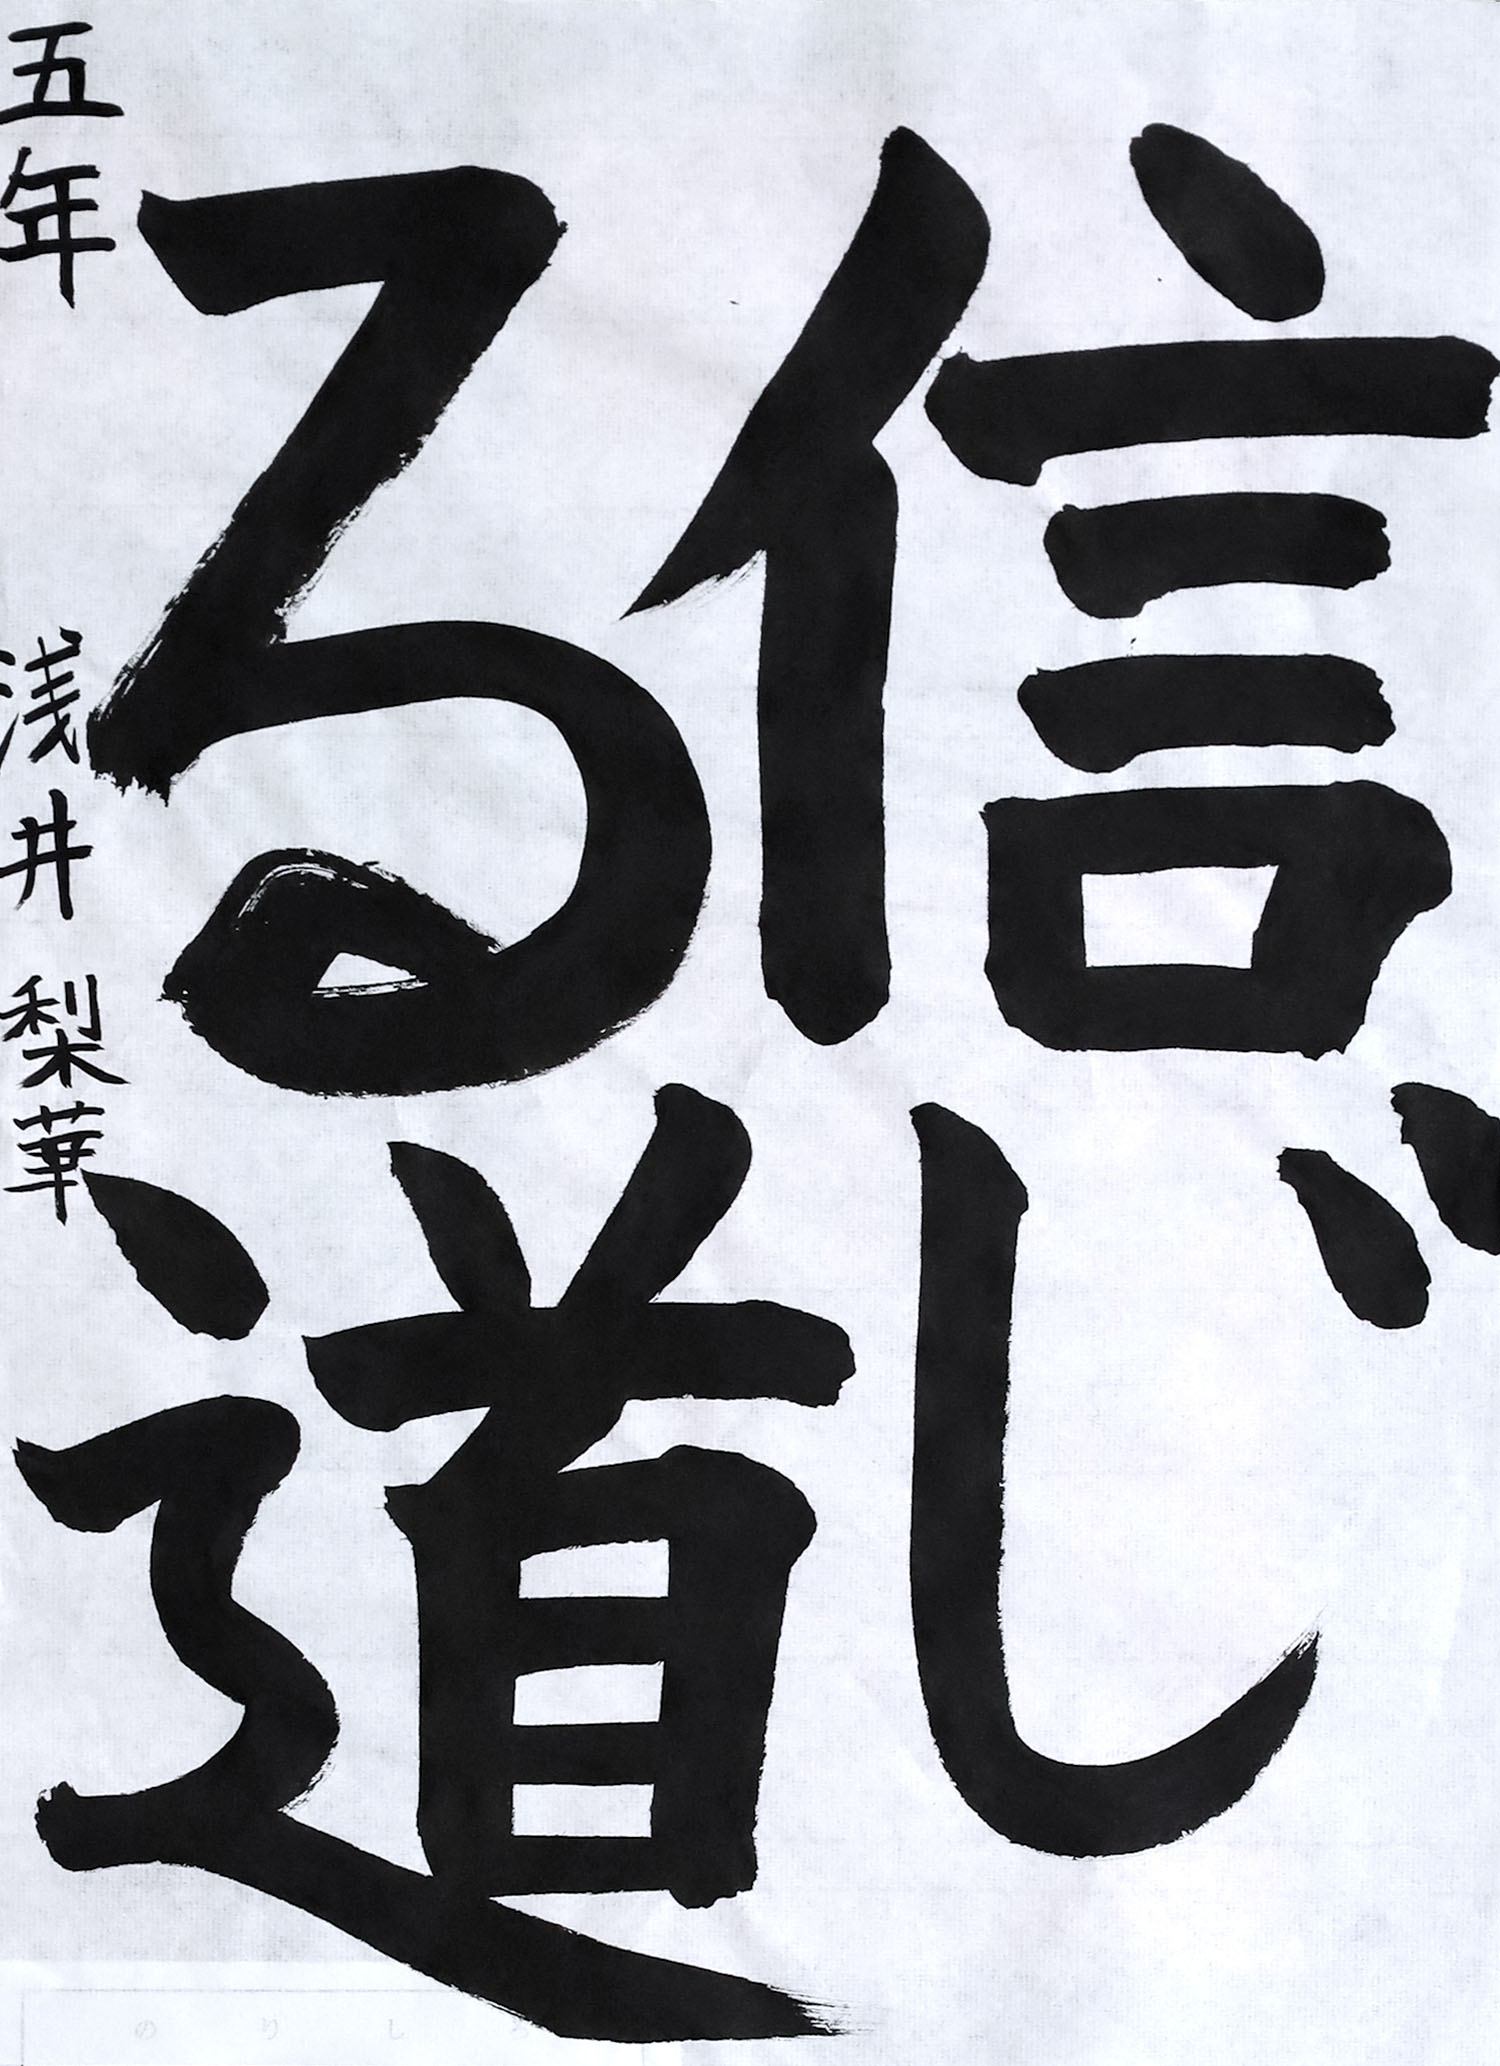 信じ
る道
五年 浅井梨華
のりしろ